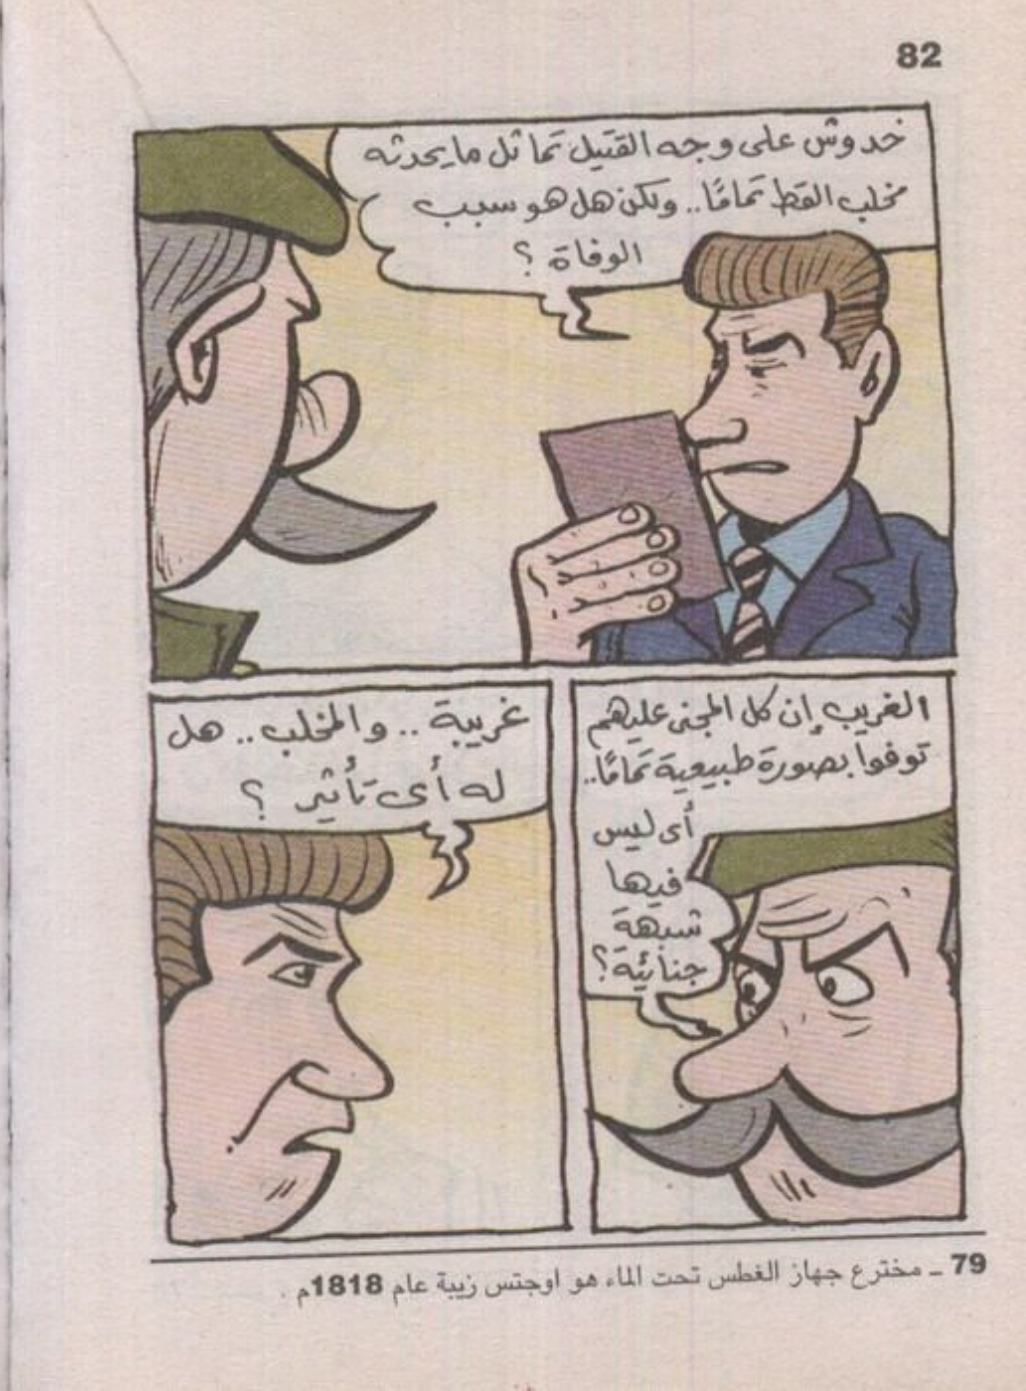 82
خدوش على وجه القتيل تماثل ما يحدثه
مخلب القط تمامًا.. ولكن هل هو سبب
الوفاة ؟
الغريب إن كل المجنى عليهم
توفوا بصورة طبيعية تمامًا..
أى ليس
فيها
شبهة
جنائية؟
غريبة .. والمخلب .. هل
له أى تأثير ؟
79 ـ مخترع جهاز الغطس تحت الماء هو اوجتس زيبة عام 1818م .